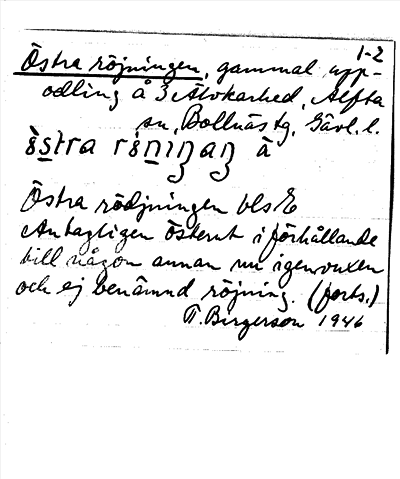 1-2
Östra röjningen, gammal upp-
odling å 3 Älvkarhed, Alfta
sn, Bollnäs tg, Gävl. l.
östra röniŋaŋ å
Östra rödjningen bls E
Antagligen österut i förhållande
till någon annan nu igenvuxen
och ej benämnd röjning. (forts.)
T. Birgerson 1946